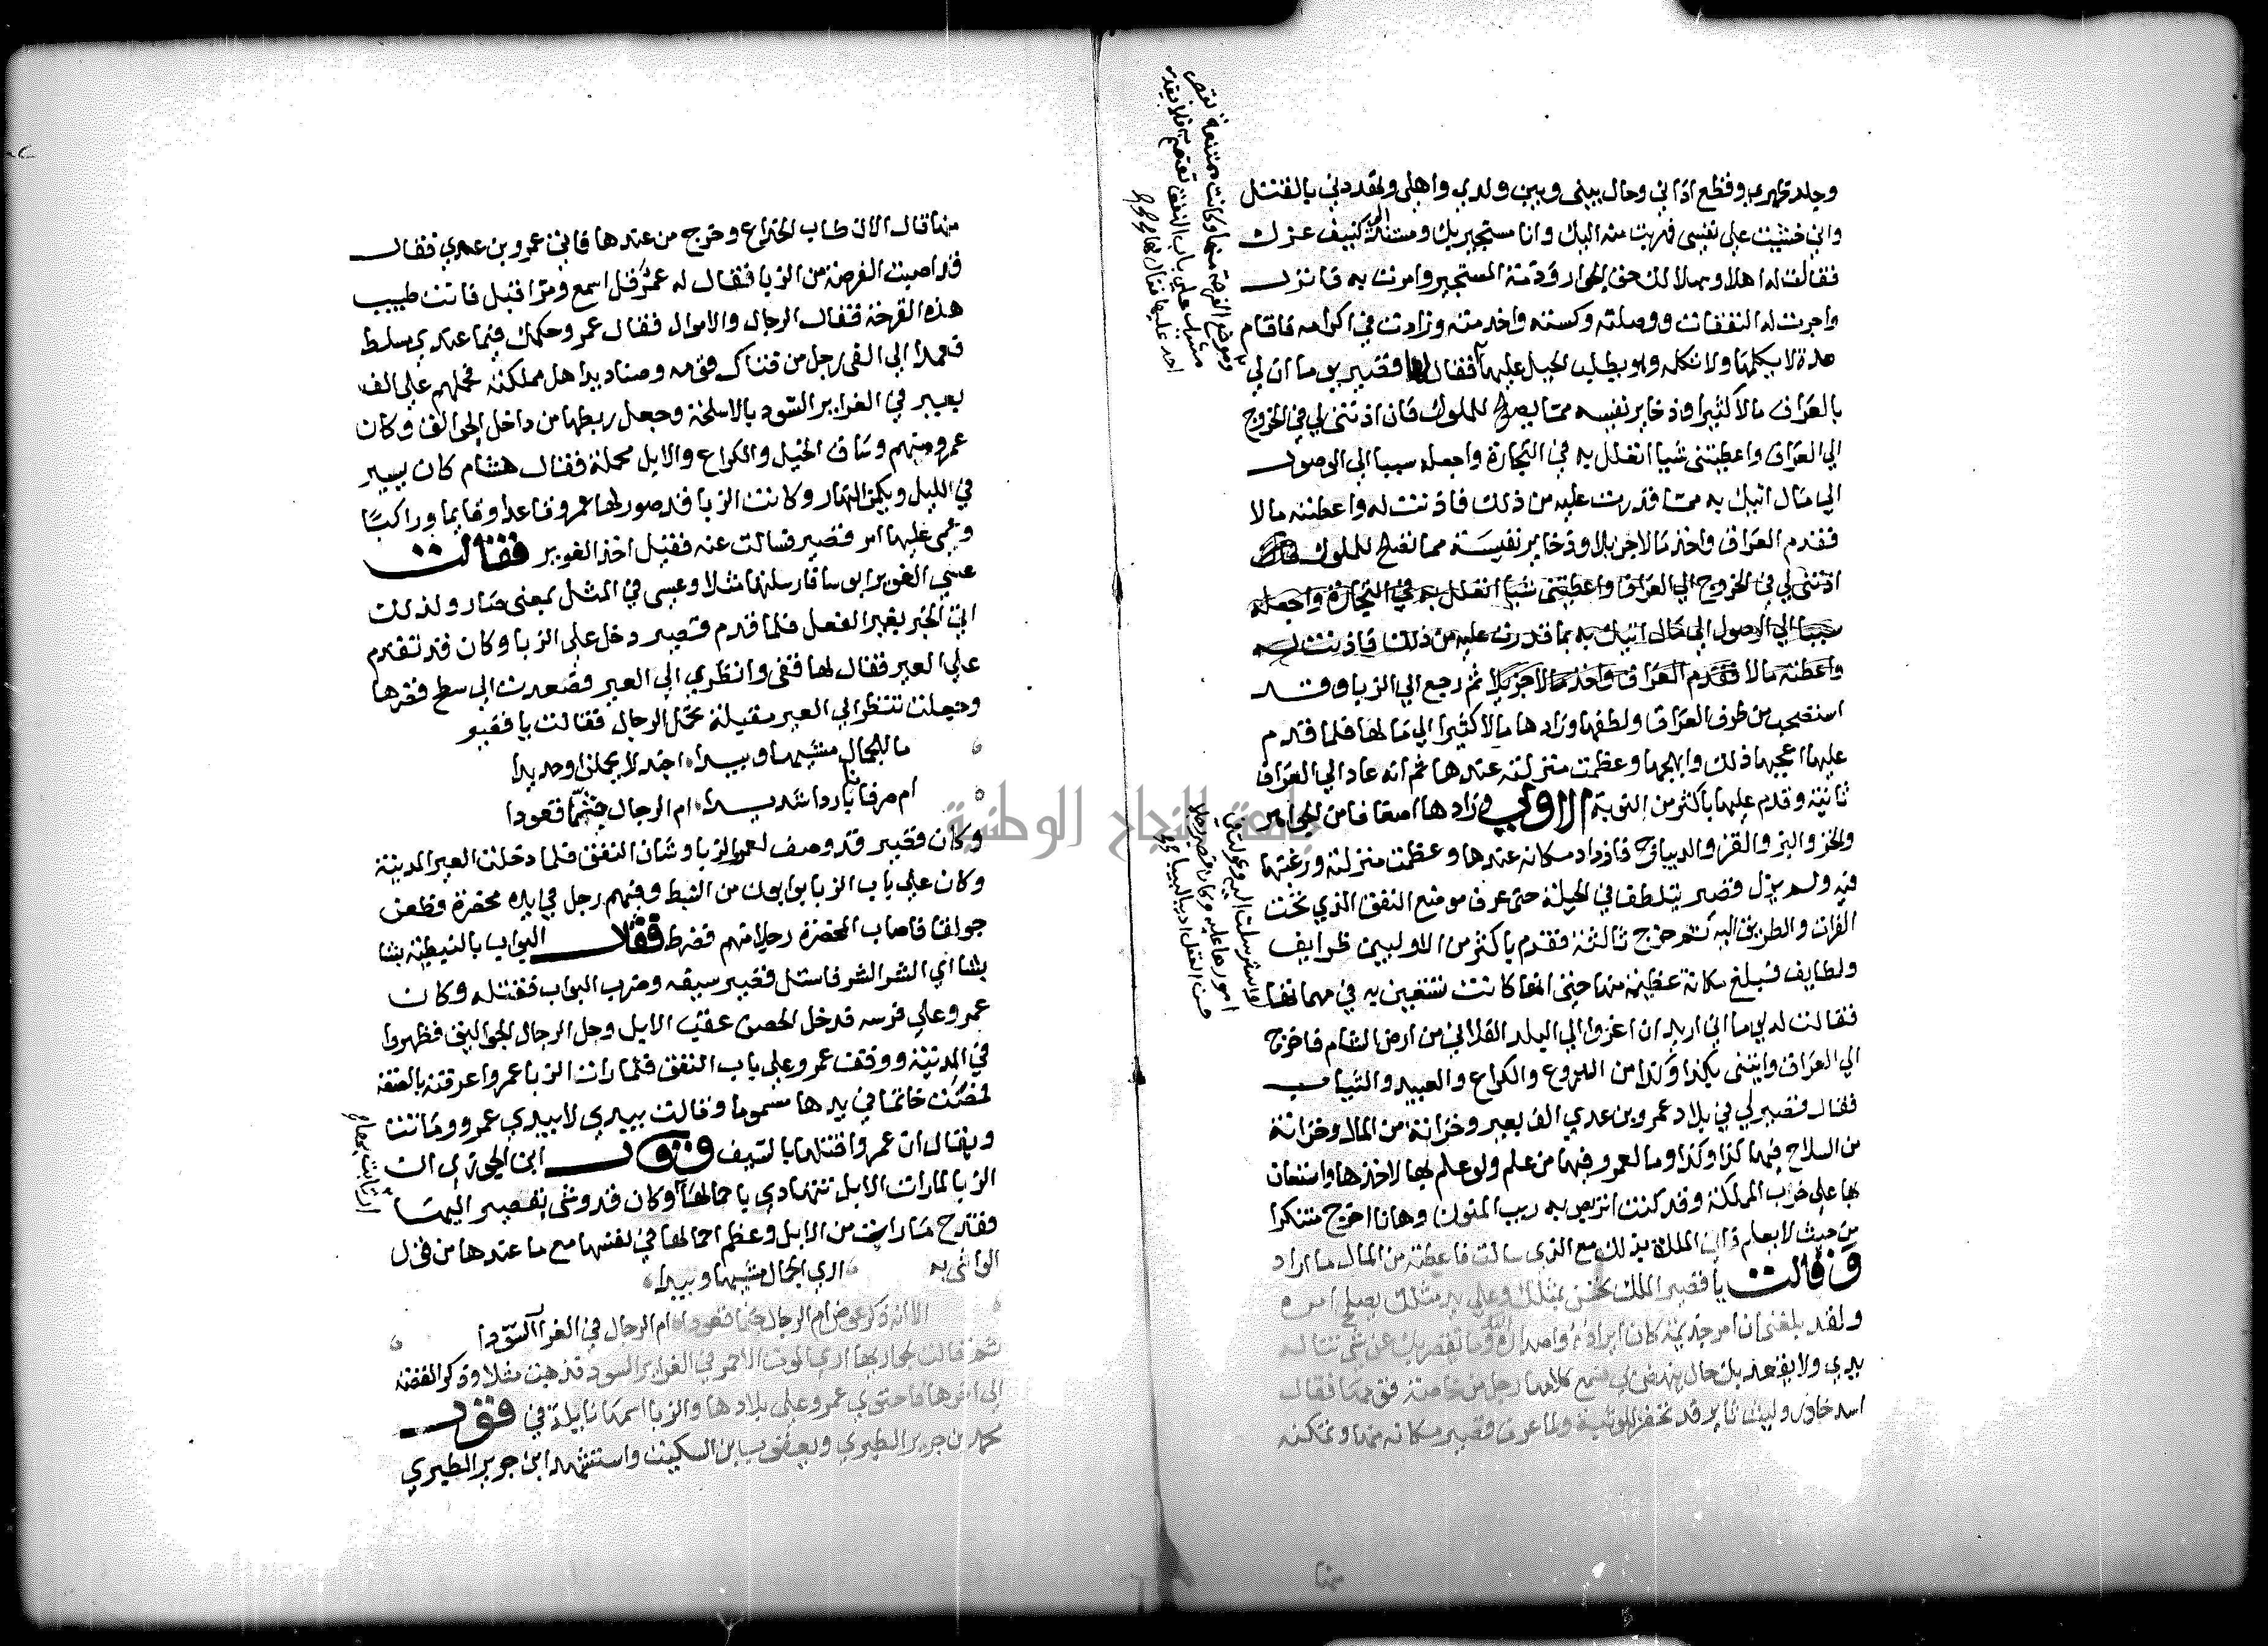 وجلد ظهري وقطع اذاني وحال بيني وبين ولدي واهلي وتهددني بالقتل
واني خشيت على نفسي فهربت منه اليك وانا مستجير بك ومستند الى كنيف عزك
فقالت له اهلا وسهلا لك حق الجوار وذمة المستجير وامرت به فانزل
واجرت له النفقات ووصلته وكسته واخدمته وزادت في اكرامه فاقام
مدة لا يكلمها ولا تكلمه وهو يطلب الحيل عليها فقال لها قصير يوما ان لي
بالعراق مالا كثيرا وذخاير نفيسه مما يصلح للملوك فان اذنتي لي في الخروج
الى العراق واعطيتني شيا اتعلل به في التجارة واجعله سببا الى الوصول
الى مال اتيك به مما قدرت عليه من ذلك فاذنت له واعطته مالا
فقدم العراق واخذ مالا جزيلا وذخاير نفيسة مما تصلح للملوك
اذنتي لي في الخروج الى العراق واعطيتني شيا اتعلل به في التجارة واجعله
سببا الى الوصول الى مال اتيك به بما قدرت عليه من ذلك فاذنت له
واعطته مالا فقدم العراق واخذ مالا جزيلا ثم رجع الى الزبا وقد
استصحب من طرف العراق ولطفها وزادها مالا كثيرا الى مالها فلما قدم
عليها اعجبها ذلك وابهجها وعظمت منزلته عندها ثم انه عاد الى العراق
ثانية وقدم عليها باكثر من النوبة الاولى وزادها اضعافا من الجواهر
والخز والبز والقز والديباج فازداد مكانه عندها وعظمت منزلته ورغبتها
فيه ولم يزل قصير يتلطف في الحيلة حتى عرف موضع النفق الذي تحت
الفرات والطريق اليه ثم خرج ثالثة فقدم باكثر من الاوليين ظرايف
ولطايف فبلغ مكانة عظيمة منها حتى انها كانت تستعين به في مهماتها
فقالت له يوما اني اريد ان اغزوا الى البلد الفلاني من ارض الشام فاخرج
الى العراق واتيني بكذا وكذا من الدروع والكراع والعبيد والثياب
فقال قصير لي في بلاد عمرو بن عدي الف بعير وخزانة من المال وخزانة
من السلاح فيها كذا وكذا وما لعمرو فيها من علم ولو علم بها لاخذها واستعان
بها على حرب المملكة وقد كنت اتربص به ريب المنون وهانا اخرج متنكرا
من حيث لا يعلم فاتى الملكة بذلك مع الذي سالت فاعطته من المال ما اراد
وقالت يا قصير الملك يحسن بمثلك وعلى يد مثلك يصلح امره
ولقد بلغني ان امر جذيمة كان ايراده واصداره اليك وما تقصر يدك عن شي تناله
يدي ولا يقعد بك حال ينهض بي فسمع كلامها رجل من خاصة قومها فقال
اسد خادر وليث ثاير قد تحفز للوثبة ولما عرف قصير مكانه منها وتمكنه
منها
وموضع الفرجة منها وكانت ممتنعة بقصر
مشيد على باب النفق تعتصم به فلا يقدر
احد عليها فقال لها
واسترسلت اليه وعولت في
امورها عليه وكان قصير رجلا
حسن العقل اديبا لبيبا
منها قال الان طاب الخداع وخرج من عندها فاتى عمرو بن عدي فقال
قد اصبت الفرصة من الزبا فقال له عمرو قل اسمع ومر اقبل فانت طبيب
هذه القرحة فقال الرجال والاموال فقال عمرو حكمك فيما عندي مسلط
فعمد الى الفي رجل من فتاك قومه وصناديد اهل مملكته فحملهم على الف
بعير في الغراير السود بالاسلحة وجعل ربطها من داخل الجوالق وكان
عمرو منهم وساق الخيل والكراع والابل محملة فقال هشام كان يسير
في الليل ويكمن النهار وكانت الزبا قد صور لها عمرو قاعدا وقايما وراكبا
وعمي عليها امر قصير فسالت عنه فقيل اخذ الغوير فقالت
عسى الغوير ابوسا فارسلتها مثلا وعسى في المثل بمعنى صار ولذلك
اتى الخبر بغير الفعل فلما قدم قصير دخل على الزبا وكان قد تقدم
على العير فقال لها قفي وانظري الى العير فصعدت الى سطح قصرها
وجعلت تنتظر الى العير مقبلة تحمل الرجال فقالت يا قصير
ما للجمال مشيها وييدا اجندلا يحملن ام حديدا
ام صرفانا باردا شديدا ام الرجال جثما قعودا
وكان قصير قد وصف لعمرو الزبا وشان النفق فلما دخلت العير المدينة
وكان على باب الزبا بوابون من النبط وفيهم رجل في يده مخصرة فطعن
جولقا فاصاب المخصرة رجلا منهم فضرط فقال البواب بالنبطية بشا
بشا اي الشر الشر فاستل قصير سيفه وضرب البواب فقتله وكان
عمرو على فرسه فدخل الحصن عقب الابل وحل الرجال الجواليق فظهروا
في المدينة ووقف عمرو على باب النفق فلما رات الزبا عمروا عرفته بالصفة
فمصت خاتما في يدها مسموما وقالت بيدي لا بيدي عمرو وماتت
ويقال ان عمروا قتلها بالسيف وقول ابن الجوزي ان
الزبا لما رات الابل تتهادى باحمالها وكان قد وشى بقصير اليها
فقدح ما رات من الابل وعظم احمالها في نفسها مع ما عندها من قول
الواشي به ارى الجمال مشيها وييدا
الا انه ذكر عوض ام الرجال جثما قعودا ام الرجال في الغراير السودا
ثم قالت لجواريها ارى الموت الاحمر في الغراير السود فذهبت مثلا وذكر القصة
الى اخرها فاحتوى عمرو على بلادها والزبا اسمها نايلة في قول
محمد بن جرير الطبري ويعقوب بن السكيت واستشهد ابن جرير الطبري
جامعة النجاح الوطنية